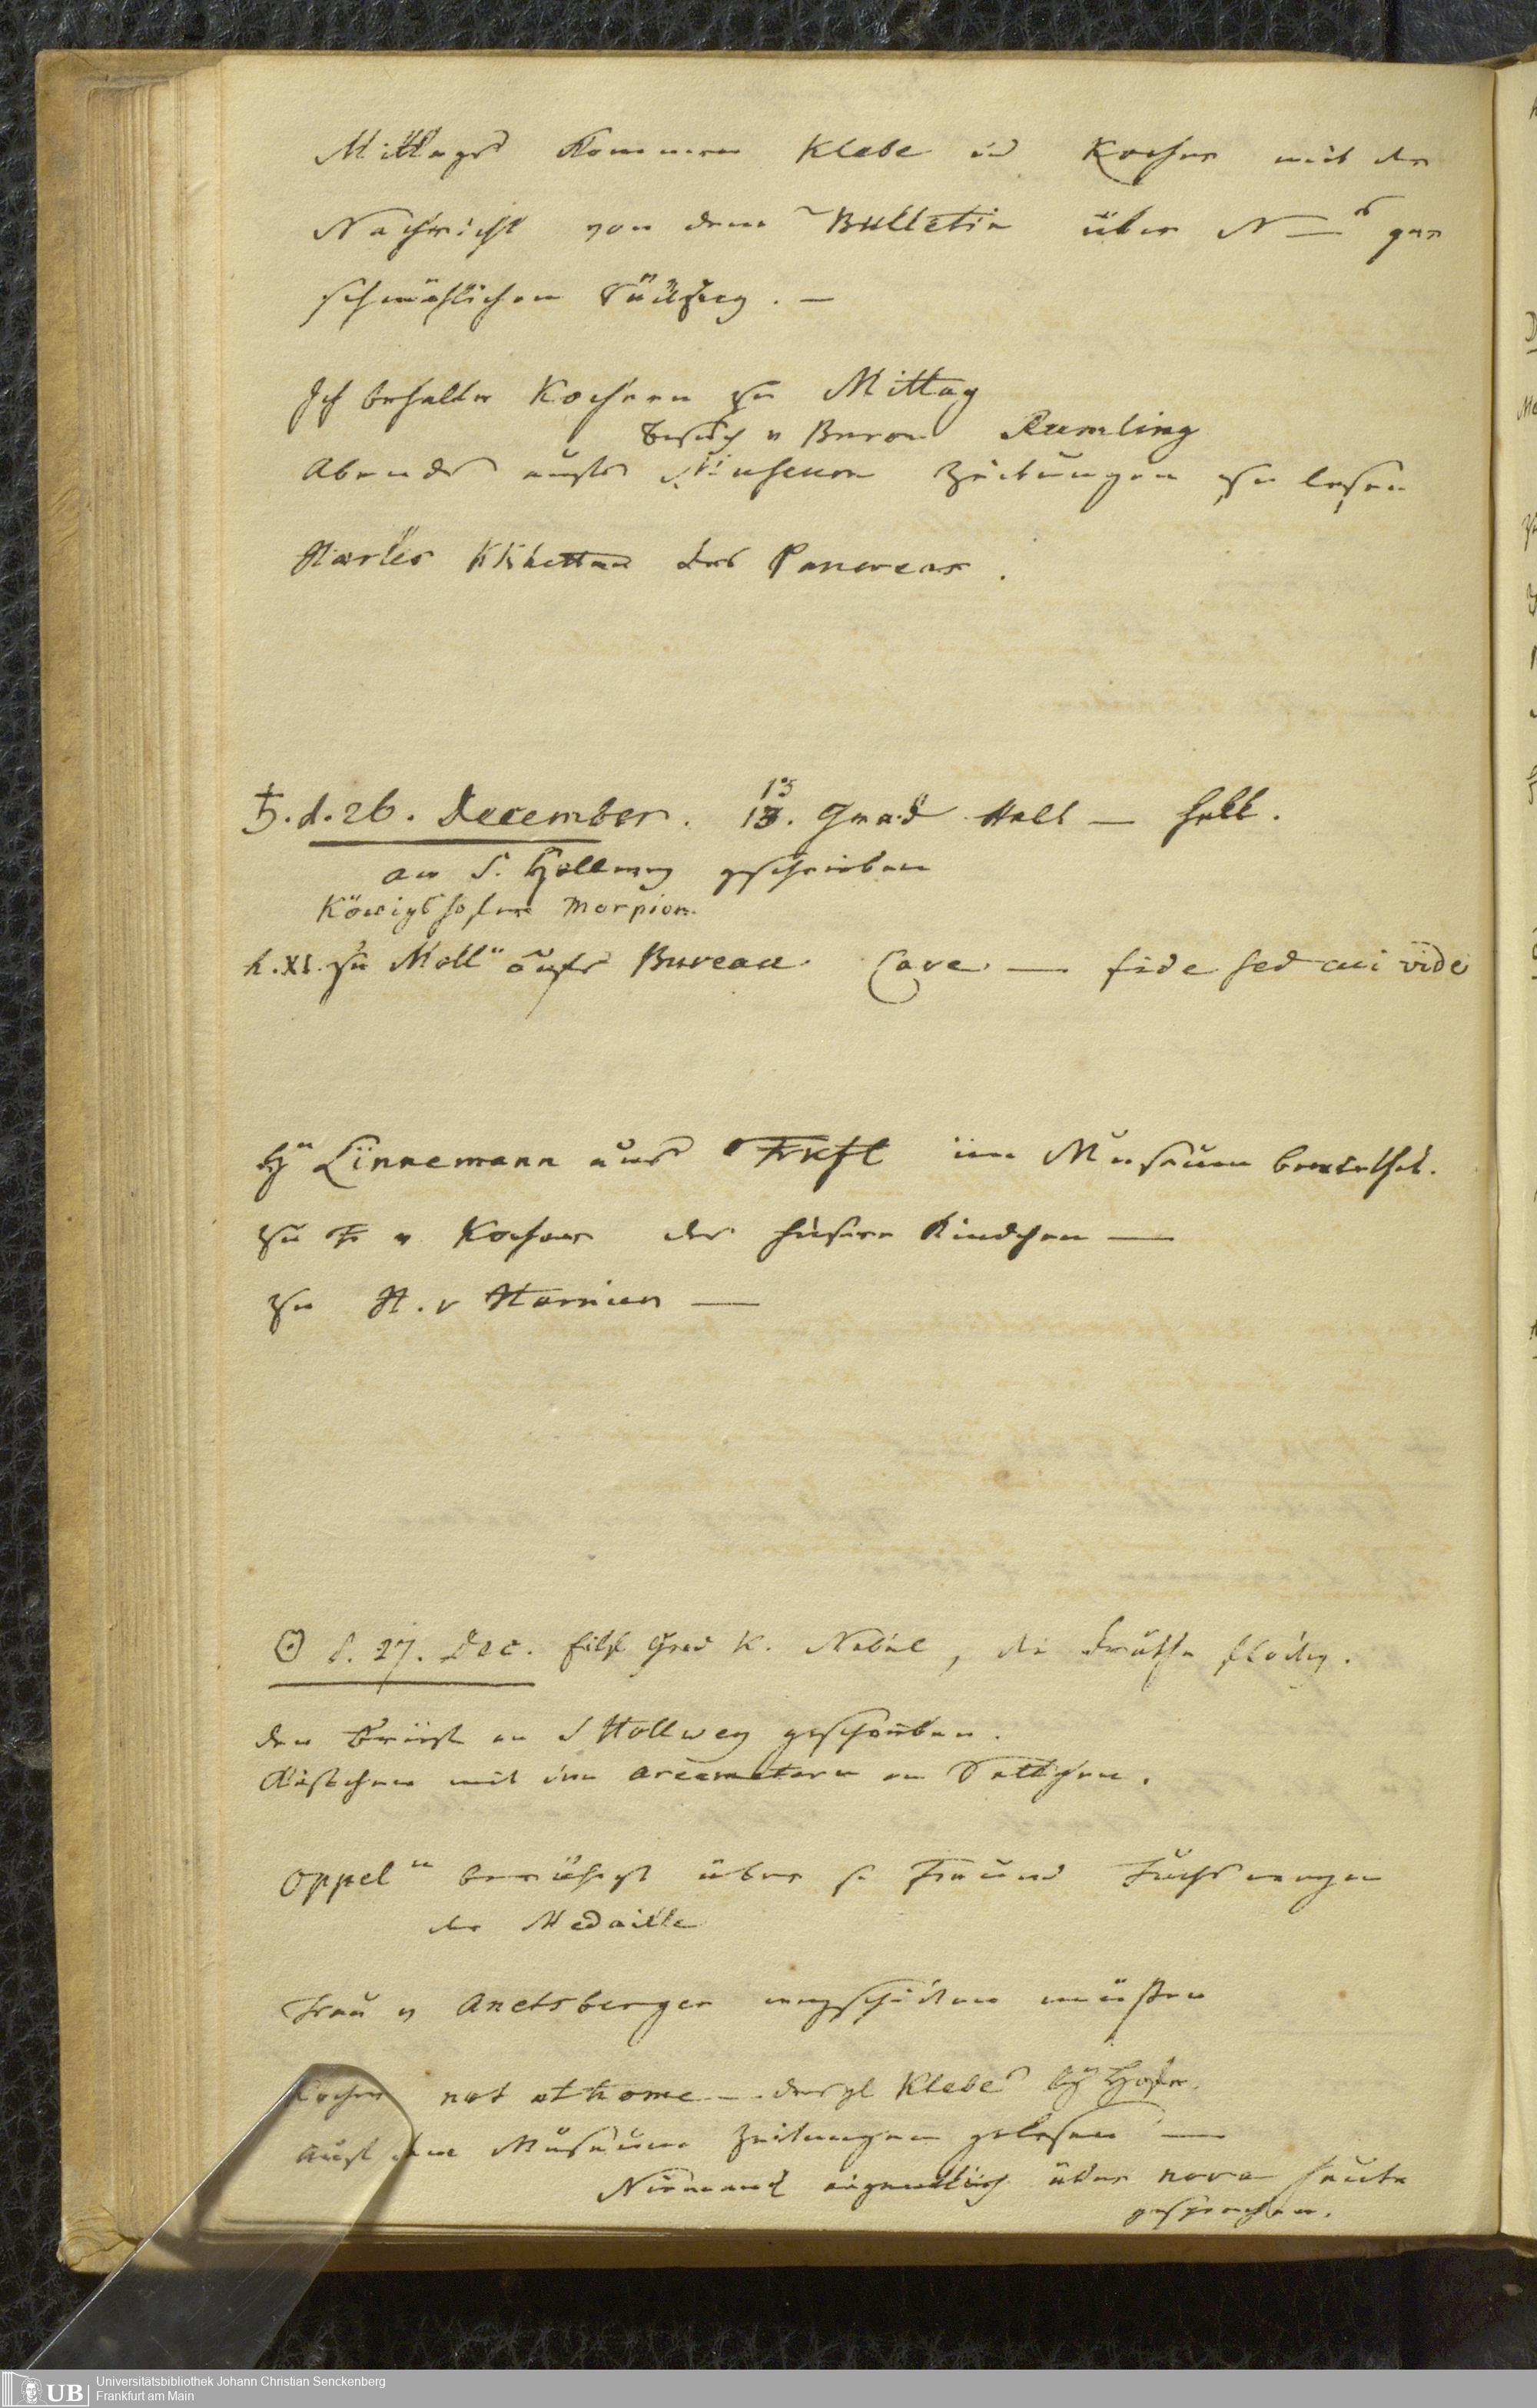 Mittags kommen Klebe ud Kocher mit der
Nachricht von dem Bulletin über N—s gar
schmählichen Rückzug. —
Ich behalte Kochern zu Mittag
Besuch v Baron Rumling
Abends aufs Museum Zeitungen zu lesen
Harles des Pancreas.
♄. d. 26. December. 13 13. Grad Kalt — hell.
an S. Hollweg geschrieben
Königshofer Morpion.
h. XI. zu Moll aufs Bureau. Cave — fide sed cui vide
Hn Linnemann aus Frkft im Museum
zu Fr v Kocher der Kindchen —
zu H. v Harnier —
☉ d. 27. Dec. Grad K. Nebel,
den Brief an S Hollweg geschrieben.
Kistchen mit den Areometern an
Oppel über s Freund Fuchs wegen
der Medaille
Frau v Anetsberger wegschicken müssen
Kocher not at home — desgl Klebe bey Hofe.
Auf dem Museum Zeitungen gelesen —
Niemand eigentlich über nova heute
gesprochen.
UB
Universitätsbibliothek Johann Christian Senckenberg
Frankfurt am Main